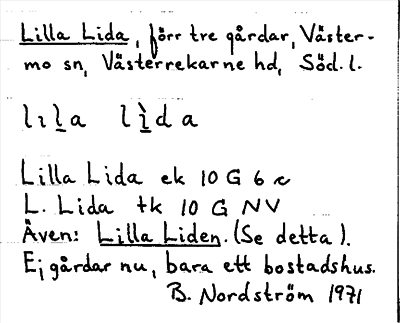 Lilla Lida, förr tre gårdar, Väster-
mo sn, Västerrekarne hd, Söd. l.
lıl̲a lı̲̀da
Lilla Lida ek 10 G 6 c
L. Lida tk 10 G NV
Även: Lilla Liden. (Se detta).
Ej gårdar nu, bara ett bostadshus.
B. Nordström 1971